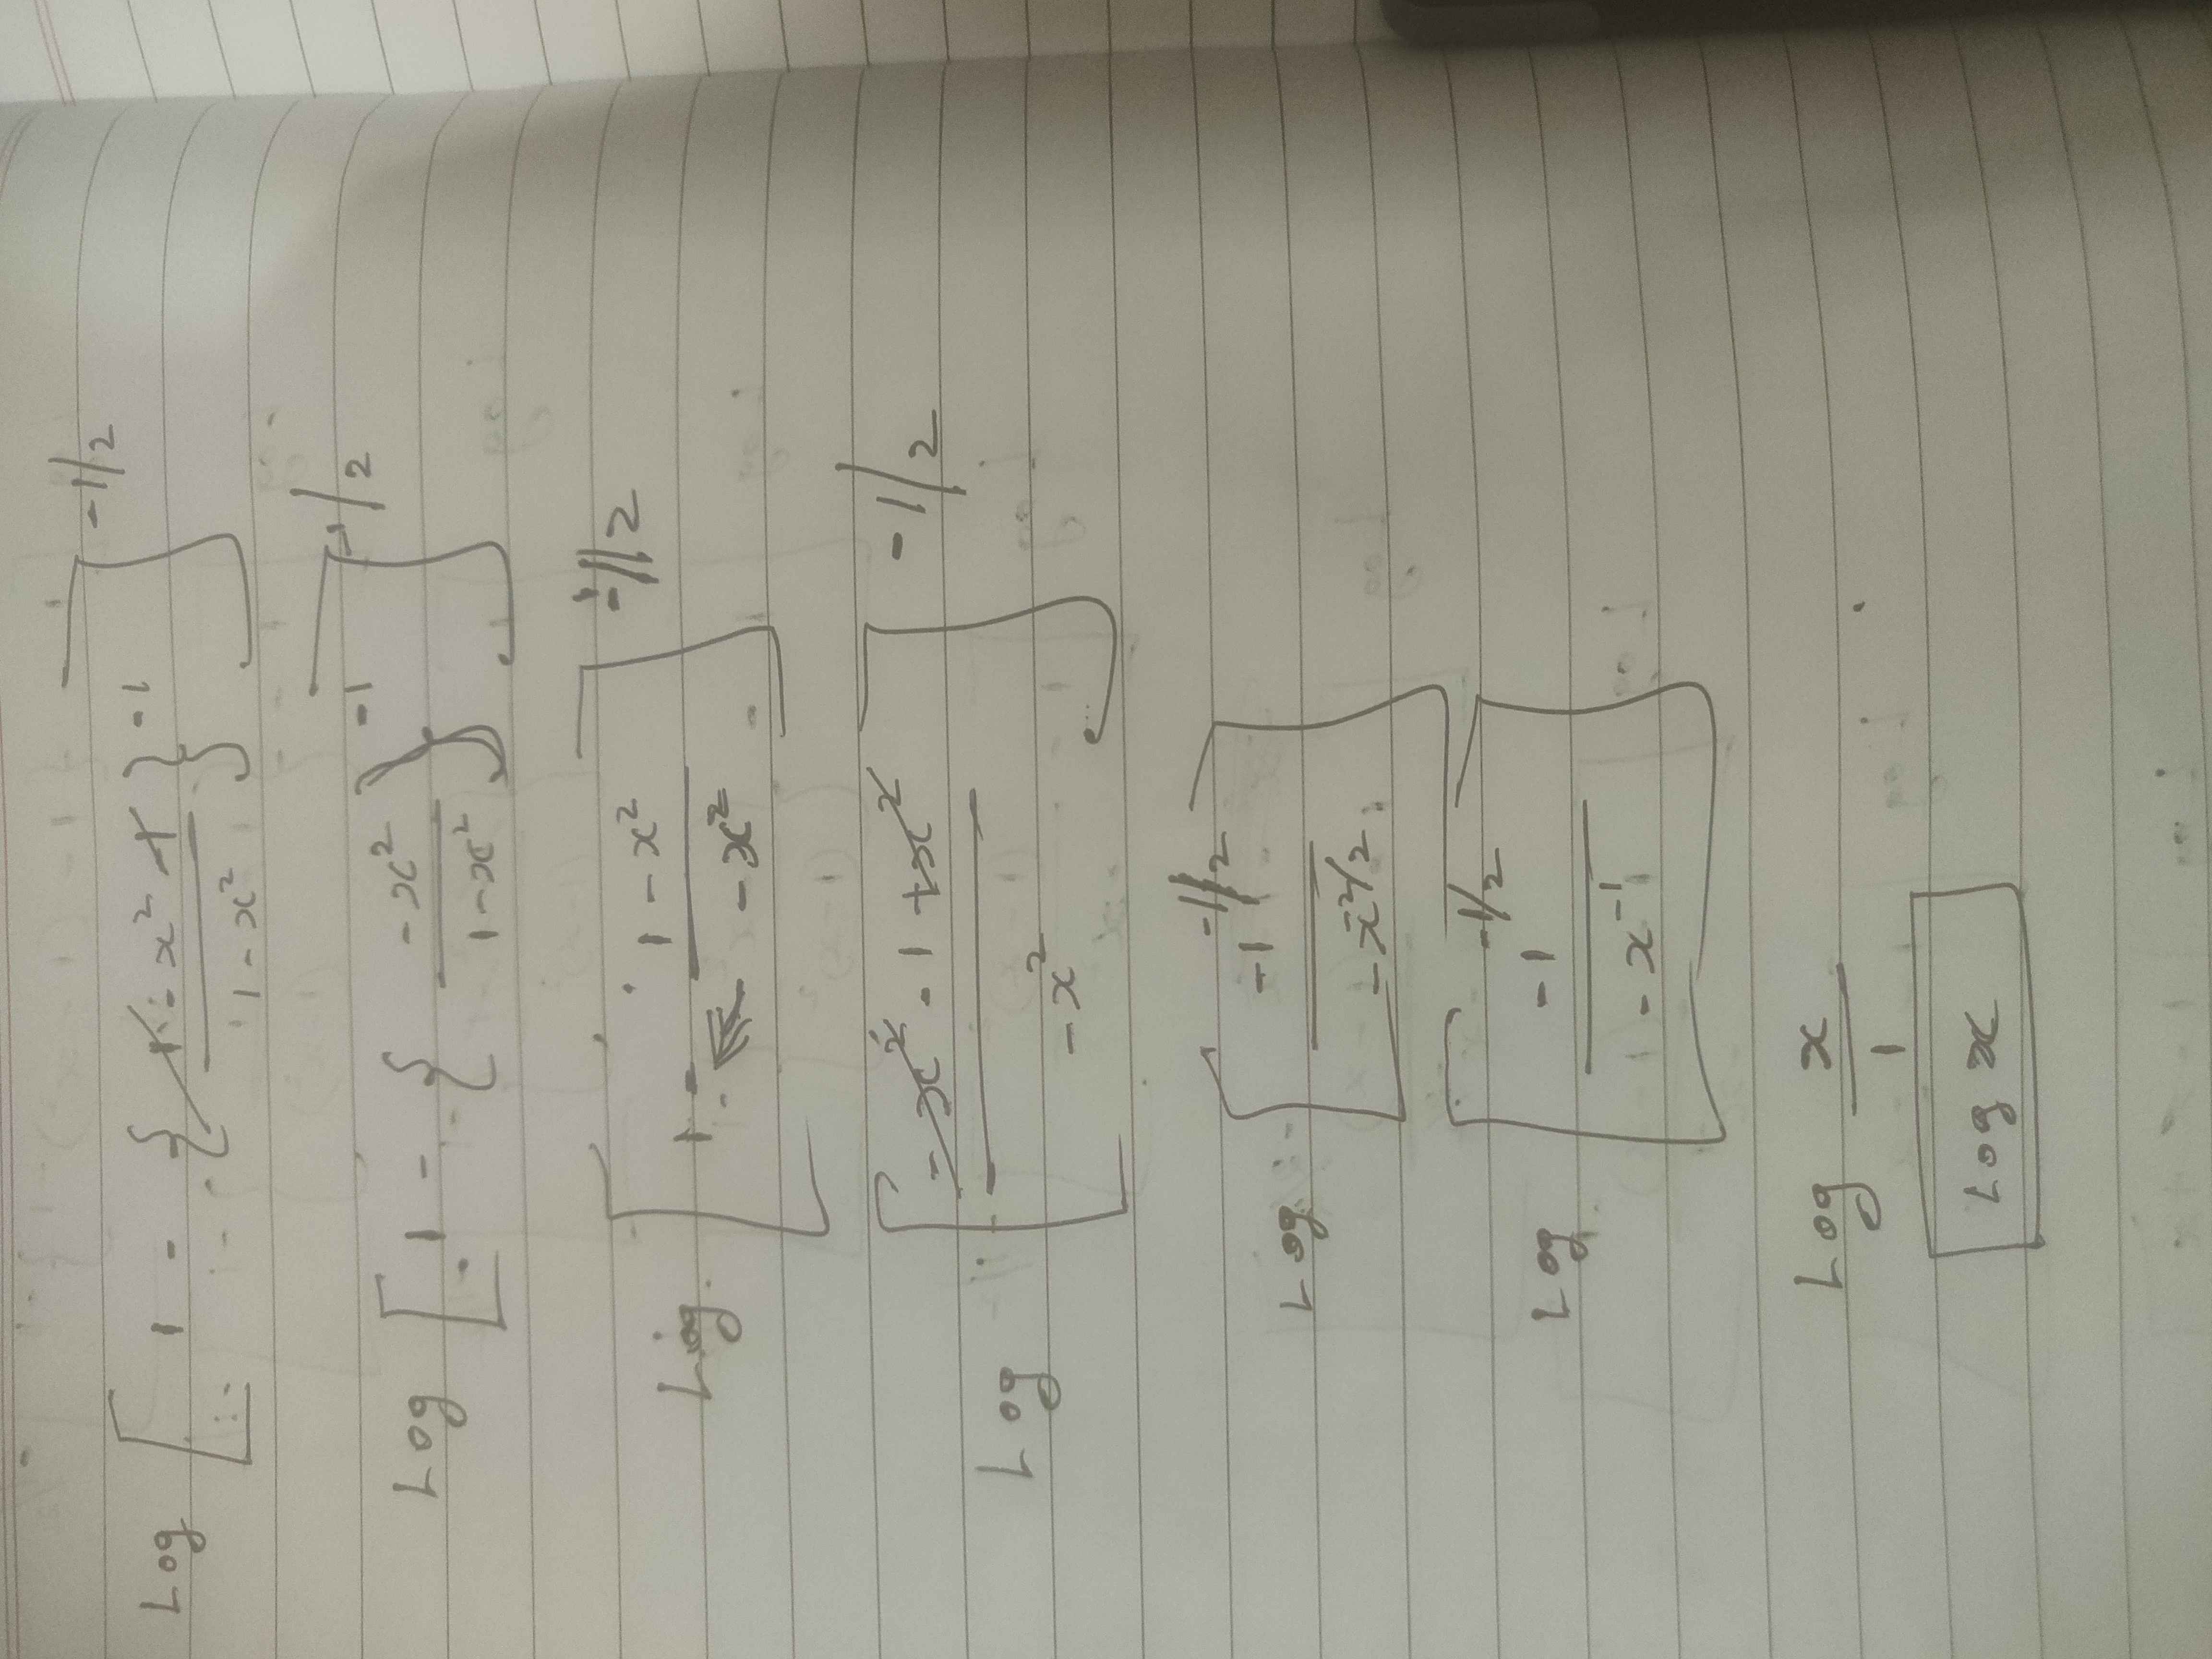 Log [ 1 - { 1 - x² - 1 / 1 - x² }⁻¹ ]^-1/2
Log [ 1 - { -x² / 1 - x² }⁻¹ ]^-1/2
Log [ 1 - 1 - x² / - x² ]^-1/2
Log [ -x² - 1 + x² / -x² ]^-1/2
Log [ -1^-1/2 / -x^-2/2 ]
Log [ -1^-1/2 / -x⁻¹ ]
Log x / 1
Log x